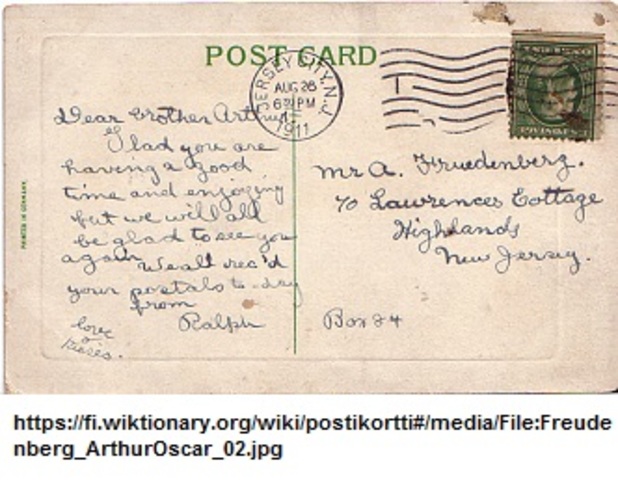 POST CARD
JERSEY CITY, N.J.
AUG 26
6 PM
1911
Dear brother Arthur
Glad you are
having a good
time and enjoying
but we will all
be glad to see you
again We all rec'd
your postals to-day
from
Ralph
love
o'
kisses.
Mr A. Fruedenberg.
% Lawrences Cottage
Highlands
New Jersey.
Box 24
PRINTED IN GERMANY
https://fi.wiktionary.org/wiki/postikortti#/media/File:Freude
nberg_ArthurOscar_02.jpg